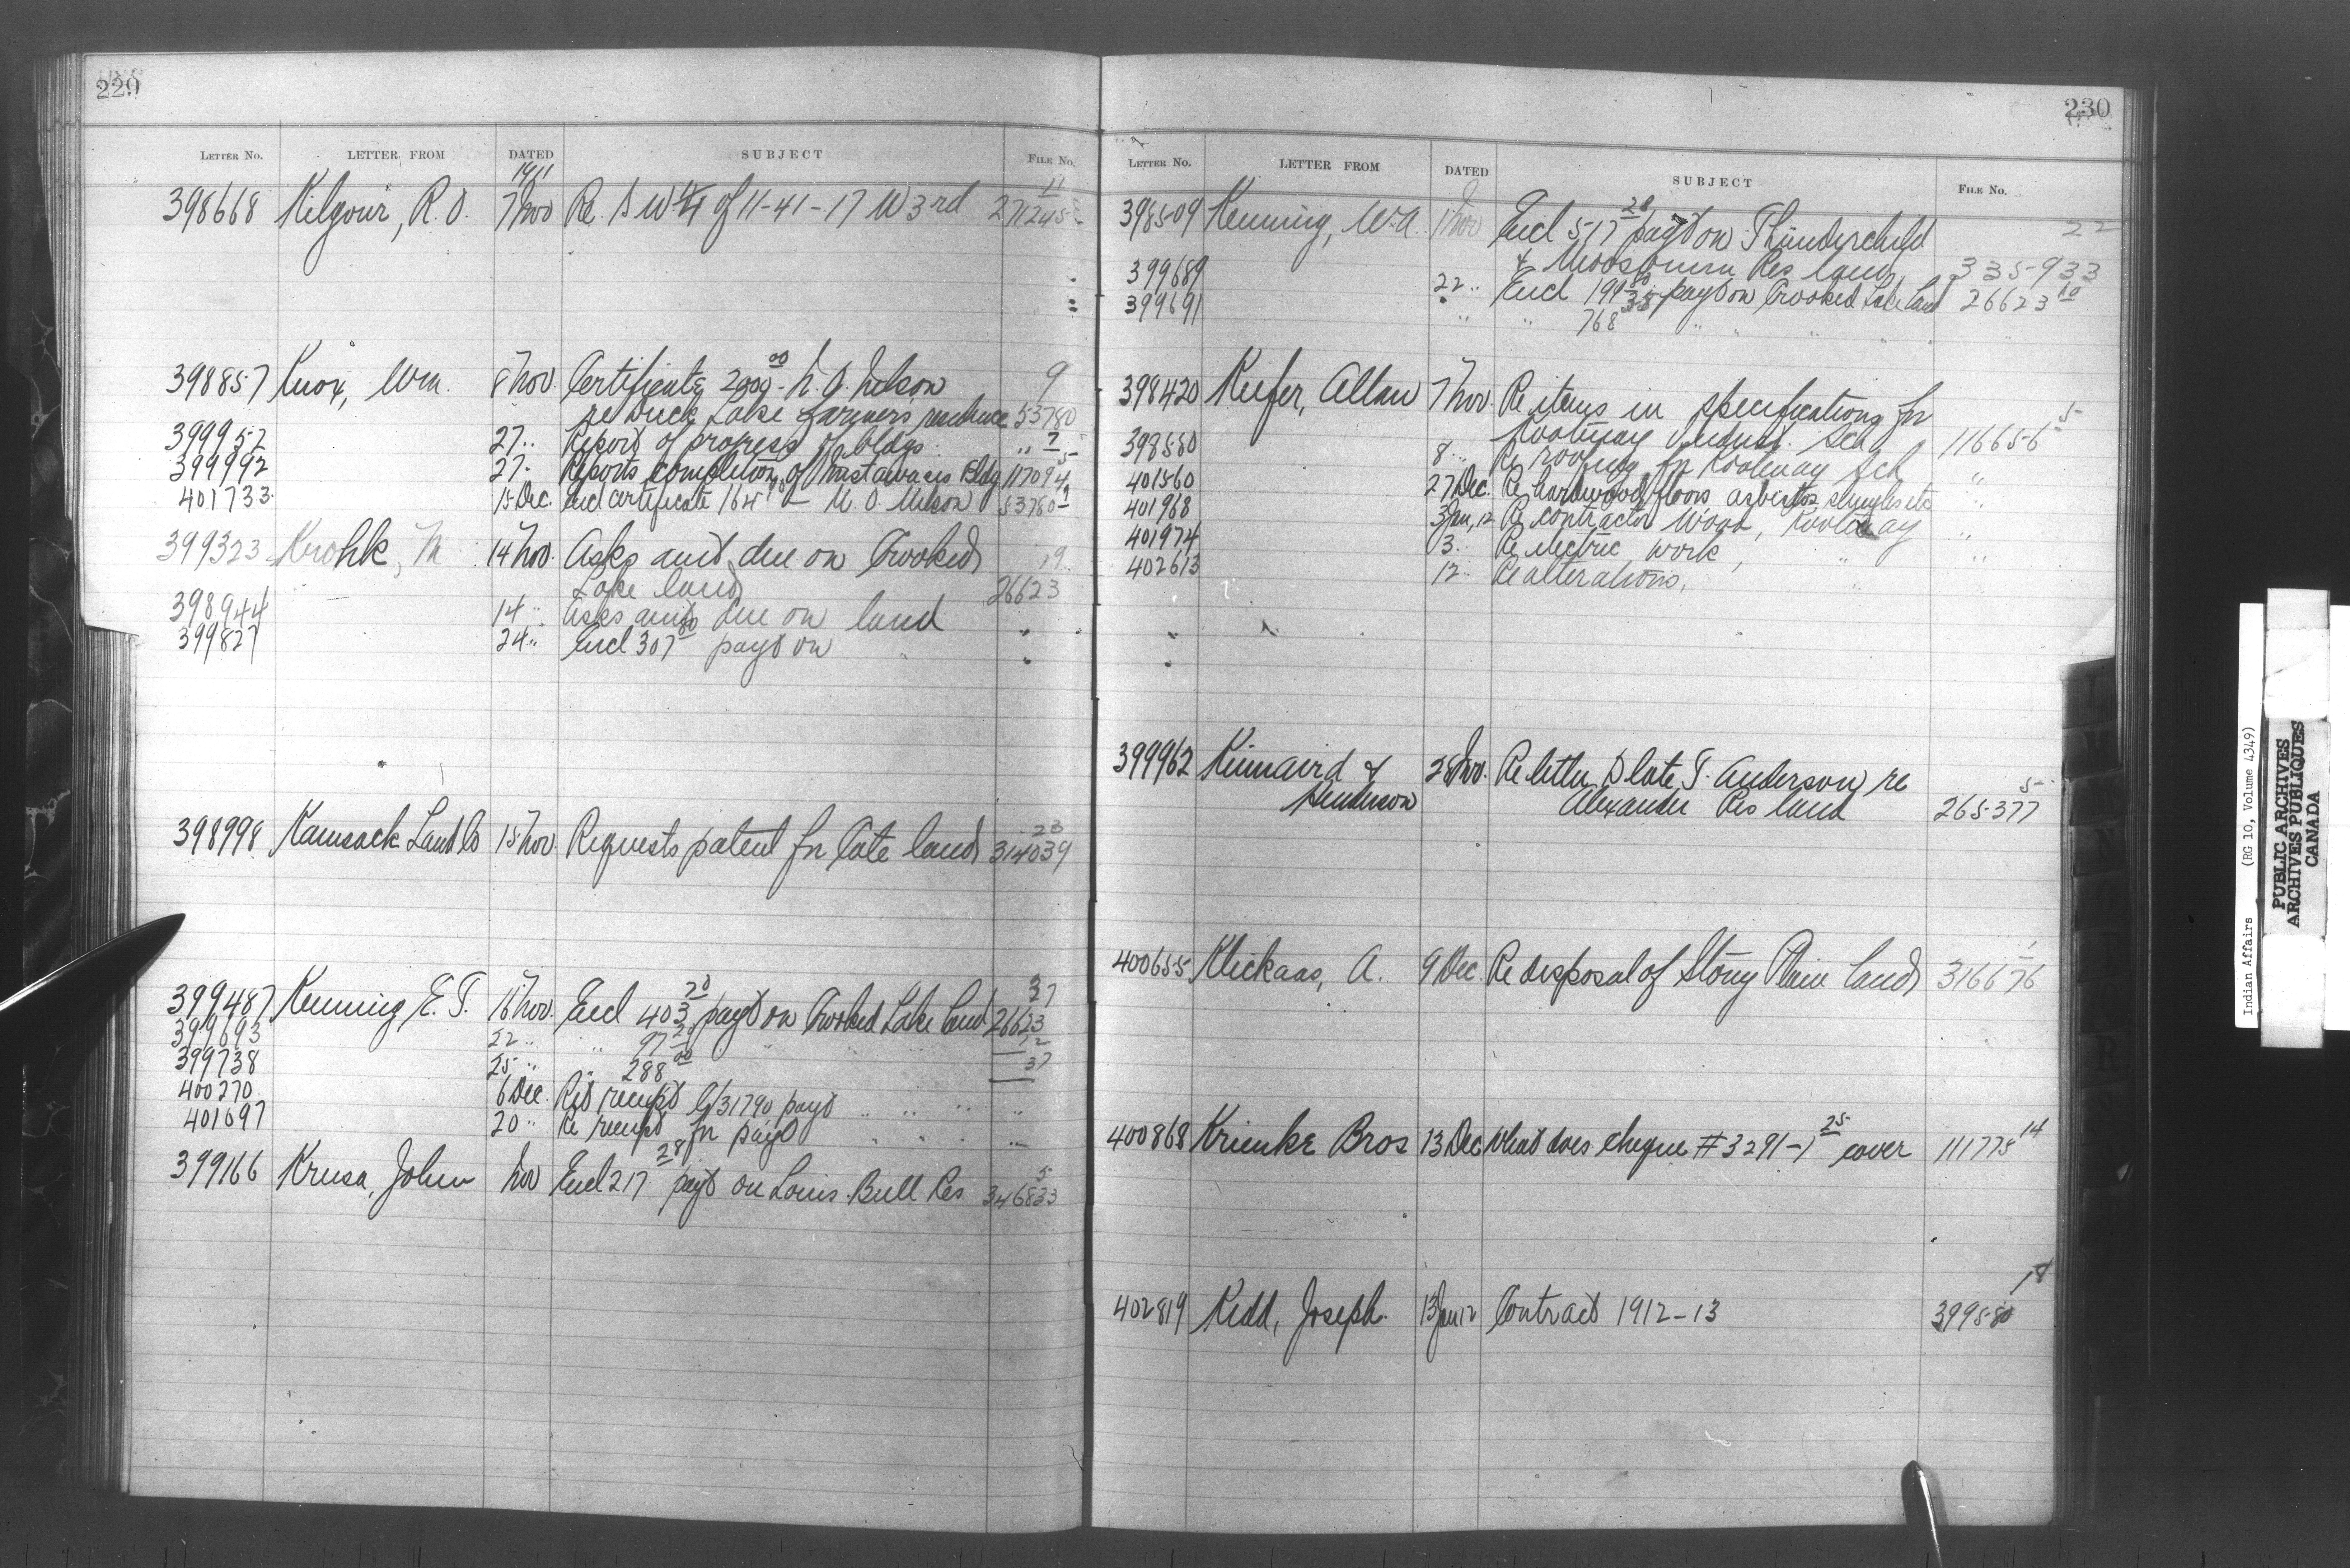 229
LETTER No. LETTER FROM DATED SUBJECT FILE No.
1911 11
398668 Kilgour, R. O. 7 Nov Re. S W 1/4 of 11-41-17 W 3rd 271245
398857 Knox, Wm. 8 Nov. Certificate 2000.00 - N. O. Nelson 9
re Duck Lake Farmers residence 53780
399952 27 " Report of progress of bldgs " 7
399992 27 " Reports completion of Mistawasis Bldg 117094 5
401733 15 Dec. Encl certificate 164 - N. O. Nelson 53780 9
399323 Krohk, M 14 Nov. Asks amt due on Crooked 19
Lake land 26623
398944 14 " Asks amt due on land "
399827 24 " Encl 307.00 payt on "
398998 Kamsack Land Co 15 Nov. Requests patent for Cote land 23 314039
399487 Kenning E. T. 18 Nov. Encl 403.70 payt on Crooked Lake land 37 26623
399693 22 " " 97.20 " " " 12
399738 25 " " 288.00 37
400270 6 Dec. Ret receipt C/31790 payt " " " "
401097 20 " Re receipt for payt " " " "
399166 Krusa, John Nov Encl 217.28 payt on Louis Bull Res 5 346833
230
LETTER No. LETTER FROM DATED SUBJECT FILE No.
398509 Kenning, W. A. 1 Nov Encl 517.20 payt on Thunderchild 22
& Moosomin Res land 335933
399689 22 " Encl 199.80 payt on Crooked Lake Land 26623 10
399691 " " 768.35 " " "
398420 Keefer, Allan 7 Nov. Re items in specifications for 5
Kootenay Indust. Sch 116656
398550 8 " Re roofing for Kootenay Sch "
401560 27 Dec. Re hardwood floors asbestos shingles etc "
401968 3 Jan, 12 Re contractor Wood, Kootenay "
401974 3 " Re electric work, " "
402613 12 " Re alterations, " "
399962 Kinnaird & 28 Nov. Re letter to late T. Anderson re 5
Henderson Alexander Res land 265377
400655 Klickaas, A. 9 Dec. Re disposal of Stony Plain land 1 316676
400868 Krienke Bros 13 Dec What does cheque # 3291-1.25 cover 111775 14
402819 Kidd, Joseph. 13 Jan 12 Contract 1912-13 18 399580
Indian Affairs (RG 10, Volume 4349)
PUBLIC ARCHIVES
ARCHIVES PUBLIQUES
CANADA